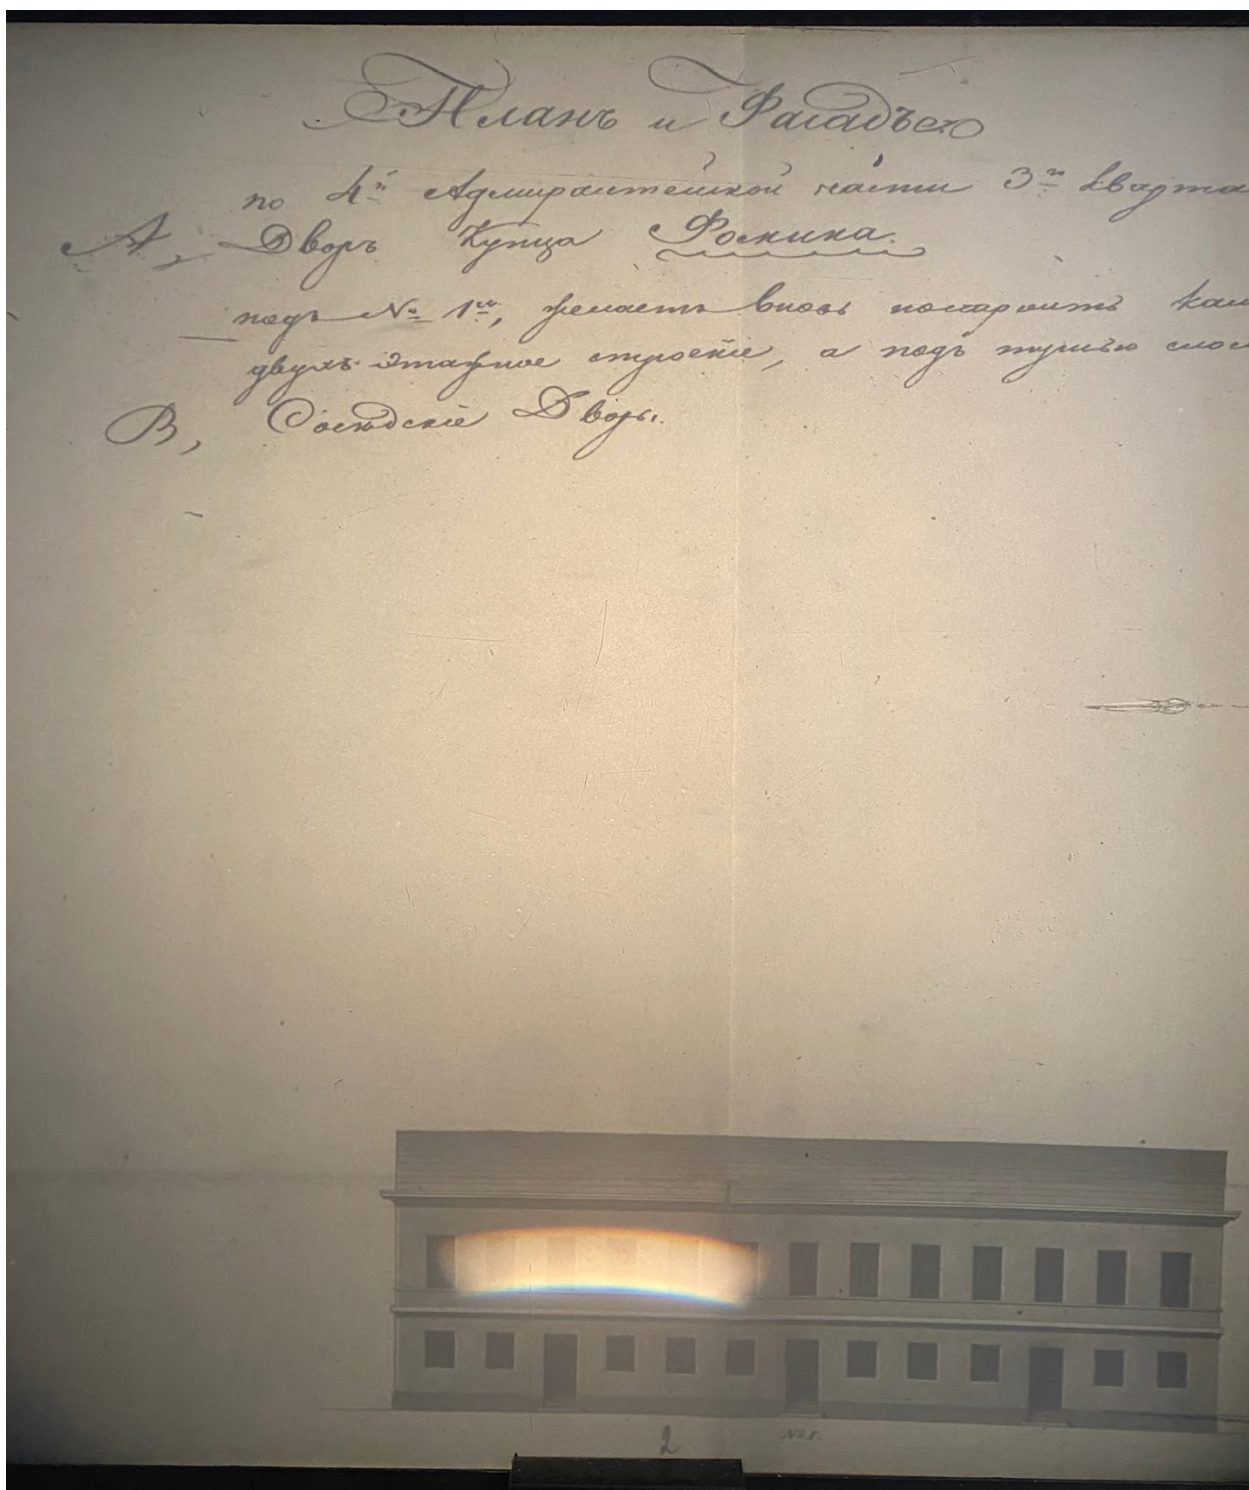 Планъ и Фасадъ
по 4й Адмиралтейской части 3го кварта
А, Дворъ Купца
подъ № 1м, желаетъ вновь построить кам
двухъ этажное строенiе, а подъ
В, Сосѣдскiе Дворы.
2 №1.